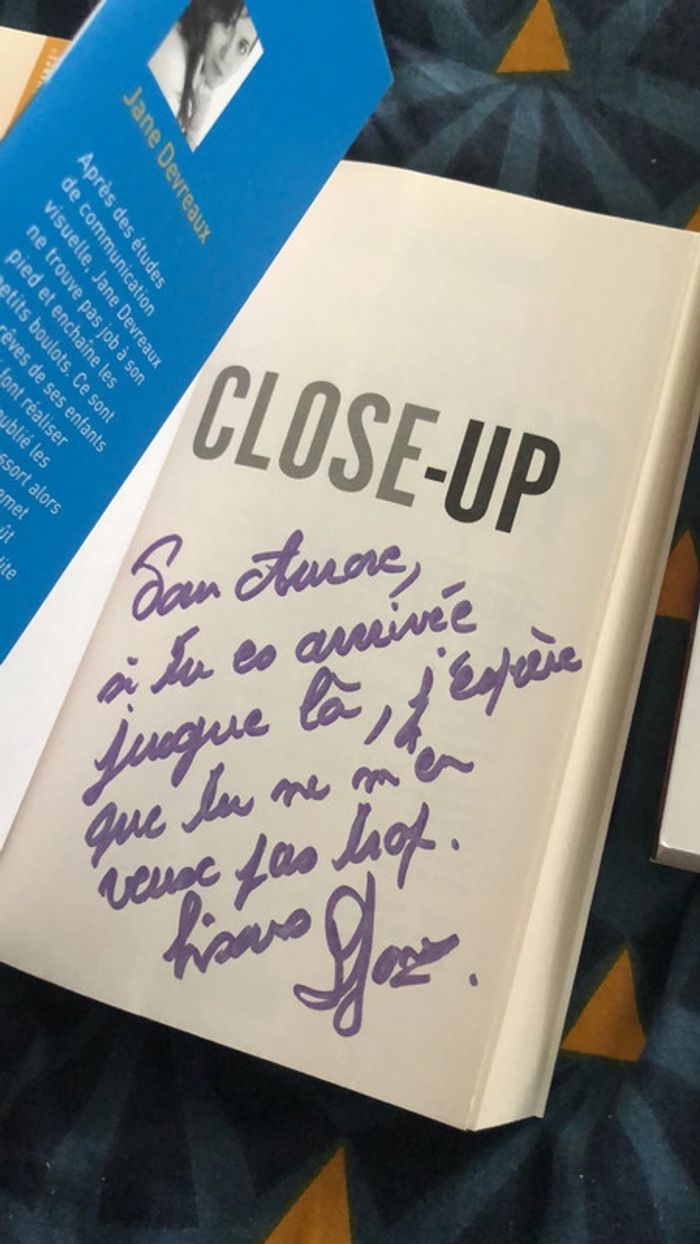 Jane Devreaux
Après des études
de communication
visuelle, Jane Devreaux
ne trouve pas job à son
pied et enchaîne les
petits boulots. Ce sont
rêves de ses enfants
font réaliser
oublié les
ssort alors
ernet
ût
ite
CLOSE-UP
Aurore,
si tu es arrivée
jusque là, j'espère
que tu ne m'en
veux pas trop.
bisous Jane.